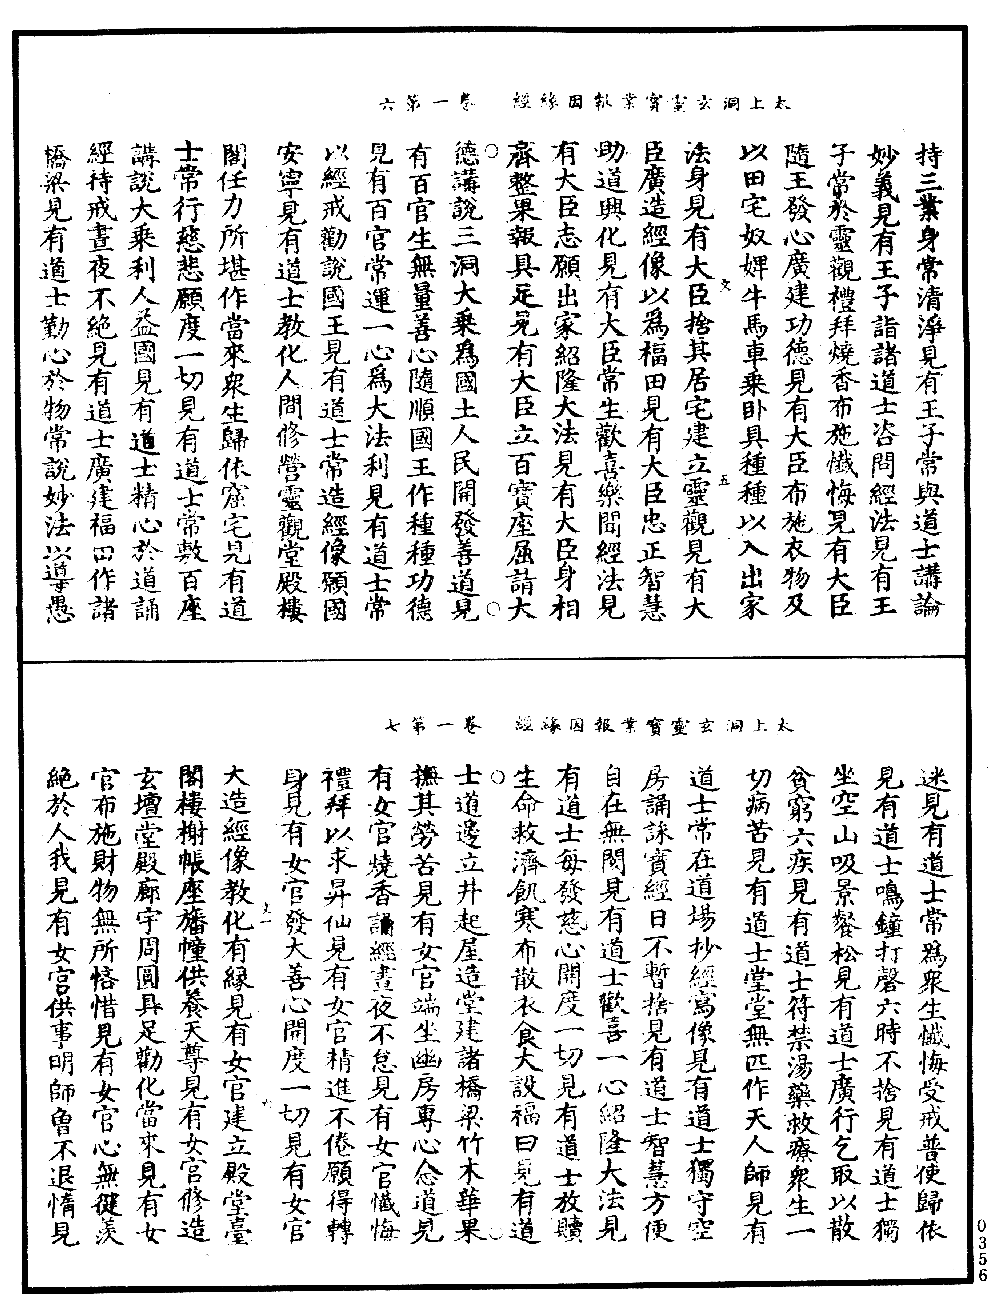 太上洞玄靈寶業報因緣經　卷一第六
持三業身常清淨見有王子常與道士講論
妙義見有王子詣諸道士咨問經法見有王
子常於靈觀禮拜燒香布施懺悔見有大臣
隨王發心廣建功德見有大臣布施衣物及
以田宅奴婢牛馬車乘卧具種種以入出家
法身見有大臣捨其居宅建立靈觀見有大
臣廣造經像以為福田見有大臣忠正智慧
助道興化見有大臣常生歡喜樂聞經法見
有大臣志願出家紹隆大法見有大臣身相
齊整果報具足見有大臣立百寶座屈請大
德講說三洞大乘為國土人民開發善道見
有百官生無量善心隨順國王作種種功德
見有百官常運一心為大法利見有道士常
以經戒勸說國王見有道士常造經像願國
安寧見有道士教化人間修營靈觀堂殿樓
閣任力所堪作當來衆生歸依窟宅見有道
士常行慈悲願度一切見有道士常敷百座
講說大乘利人益國見有道士精心於道誦
經持戒晝夜不絕見有道士廣建福田作諸
橋梁見有道士勤心於物常說妙法以導愚
太上洞玄靈寶業報因緣經　卷一第七
迷見有道士常為衆生懺悔受戒普使歸依
見有道士鳴鐘打磬六時不捨見有道士獨
坐空山吸景餐松見有道士廣行乞取以散
貧窮六疾見有道士符禁湯藥救療衆生一
切病苦見有道士堂堂無匹作天人師見有
道士常在道場抄經寫像見有道士獨守空
房誦詠寶經日不暫捨見有道士智慧方便
自在無閡見有道士歡喜一心紹隆大法見
有道士每發慈心開度一切見有道士放贖
生命救濟飢寒布散衣食大設福田見有道
士道邊立井起屋造堂建諸橋梁竹木華果
撫其勞苦見有女官端坐幽房專心念道見
有女官燒香誦經晝夜不怠見有女官懺悔
禮拜以求昇仙見有女官精進不倦願得轉
身見有女官發大善心開度一切見有女官
大造經像教化有緣見有女官建立殿堂臺
閣樓榭帳座旛幢供養天尊見有女官修造
玄壇堂殿廊宇周圓具足勸化當來見有女
官布施財物無所悋惜見有女官心無健羨
絕於人我見有女官供事明師曾不退惰見
0356